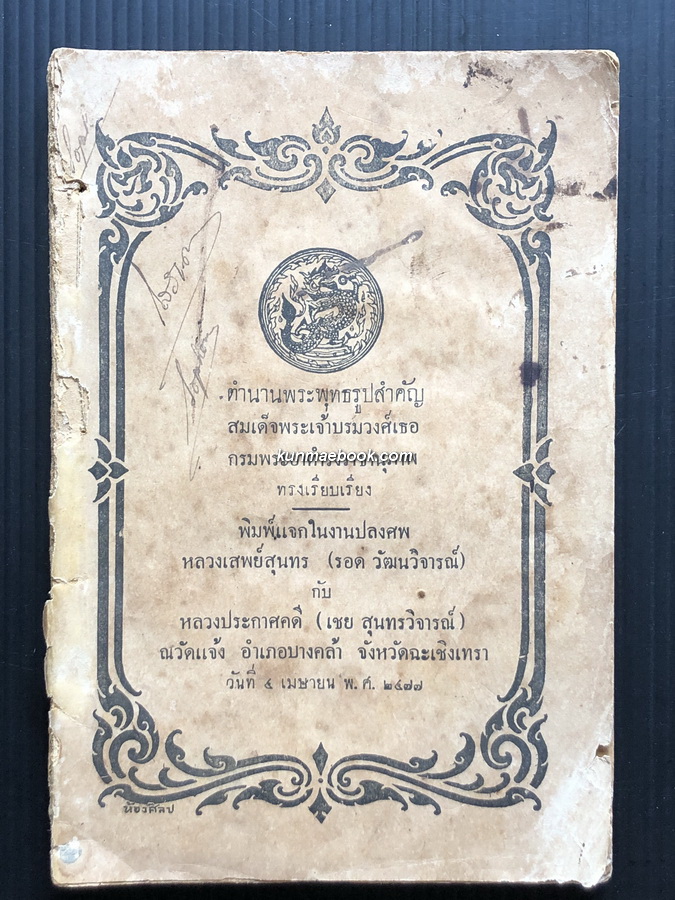 ตำนานพระพุทธรูปสำคัญ
สมเด็จพระเจ้าบรมวงศ์เธอ
kunmaebook.com
กรมพระยาดำรงราชานุภาพ
ทรงเรียบเรียง
พิมพ์แจกในงานปลงศพ
หลวงเสพย์สุนทร (รอด วัฒนวิจารณ์)
กับ
หลวงประกาศคดี (เชย สุนทรวิจารณ์)
ณวัดแจ้ง อำเภอบางคล้า จังหวัดฉะเชิงเทรา
วันที่ ๔ เมษายน พ.ศ. ๒๔๗๗
ห้องศิลป